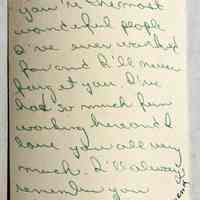 you're the most
wonderful people
I've ever worked
for and I'll never
forget you. I've
had so much fun
working here and I
love you all very
much. I'll always
remember you